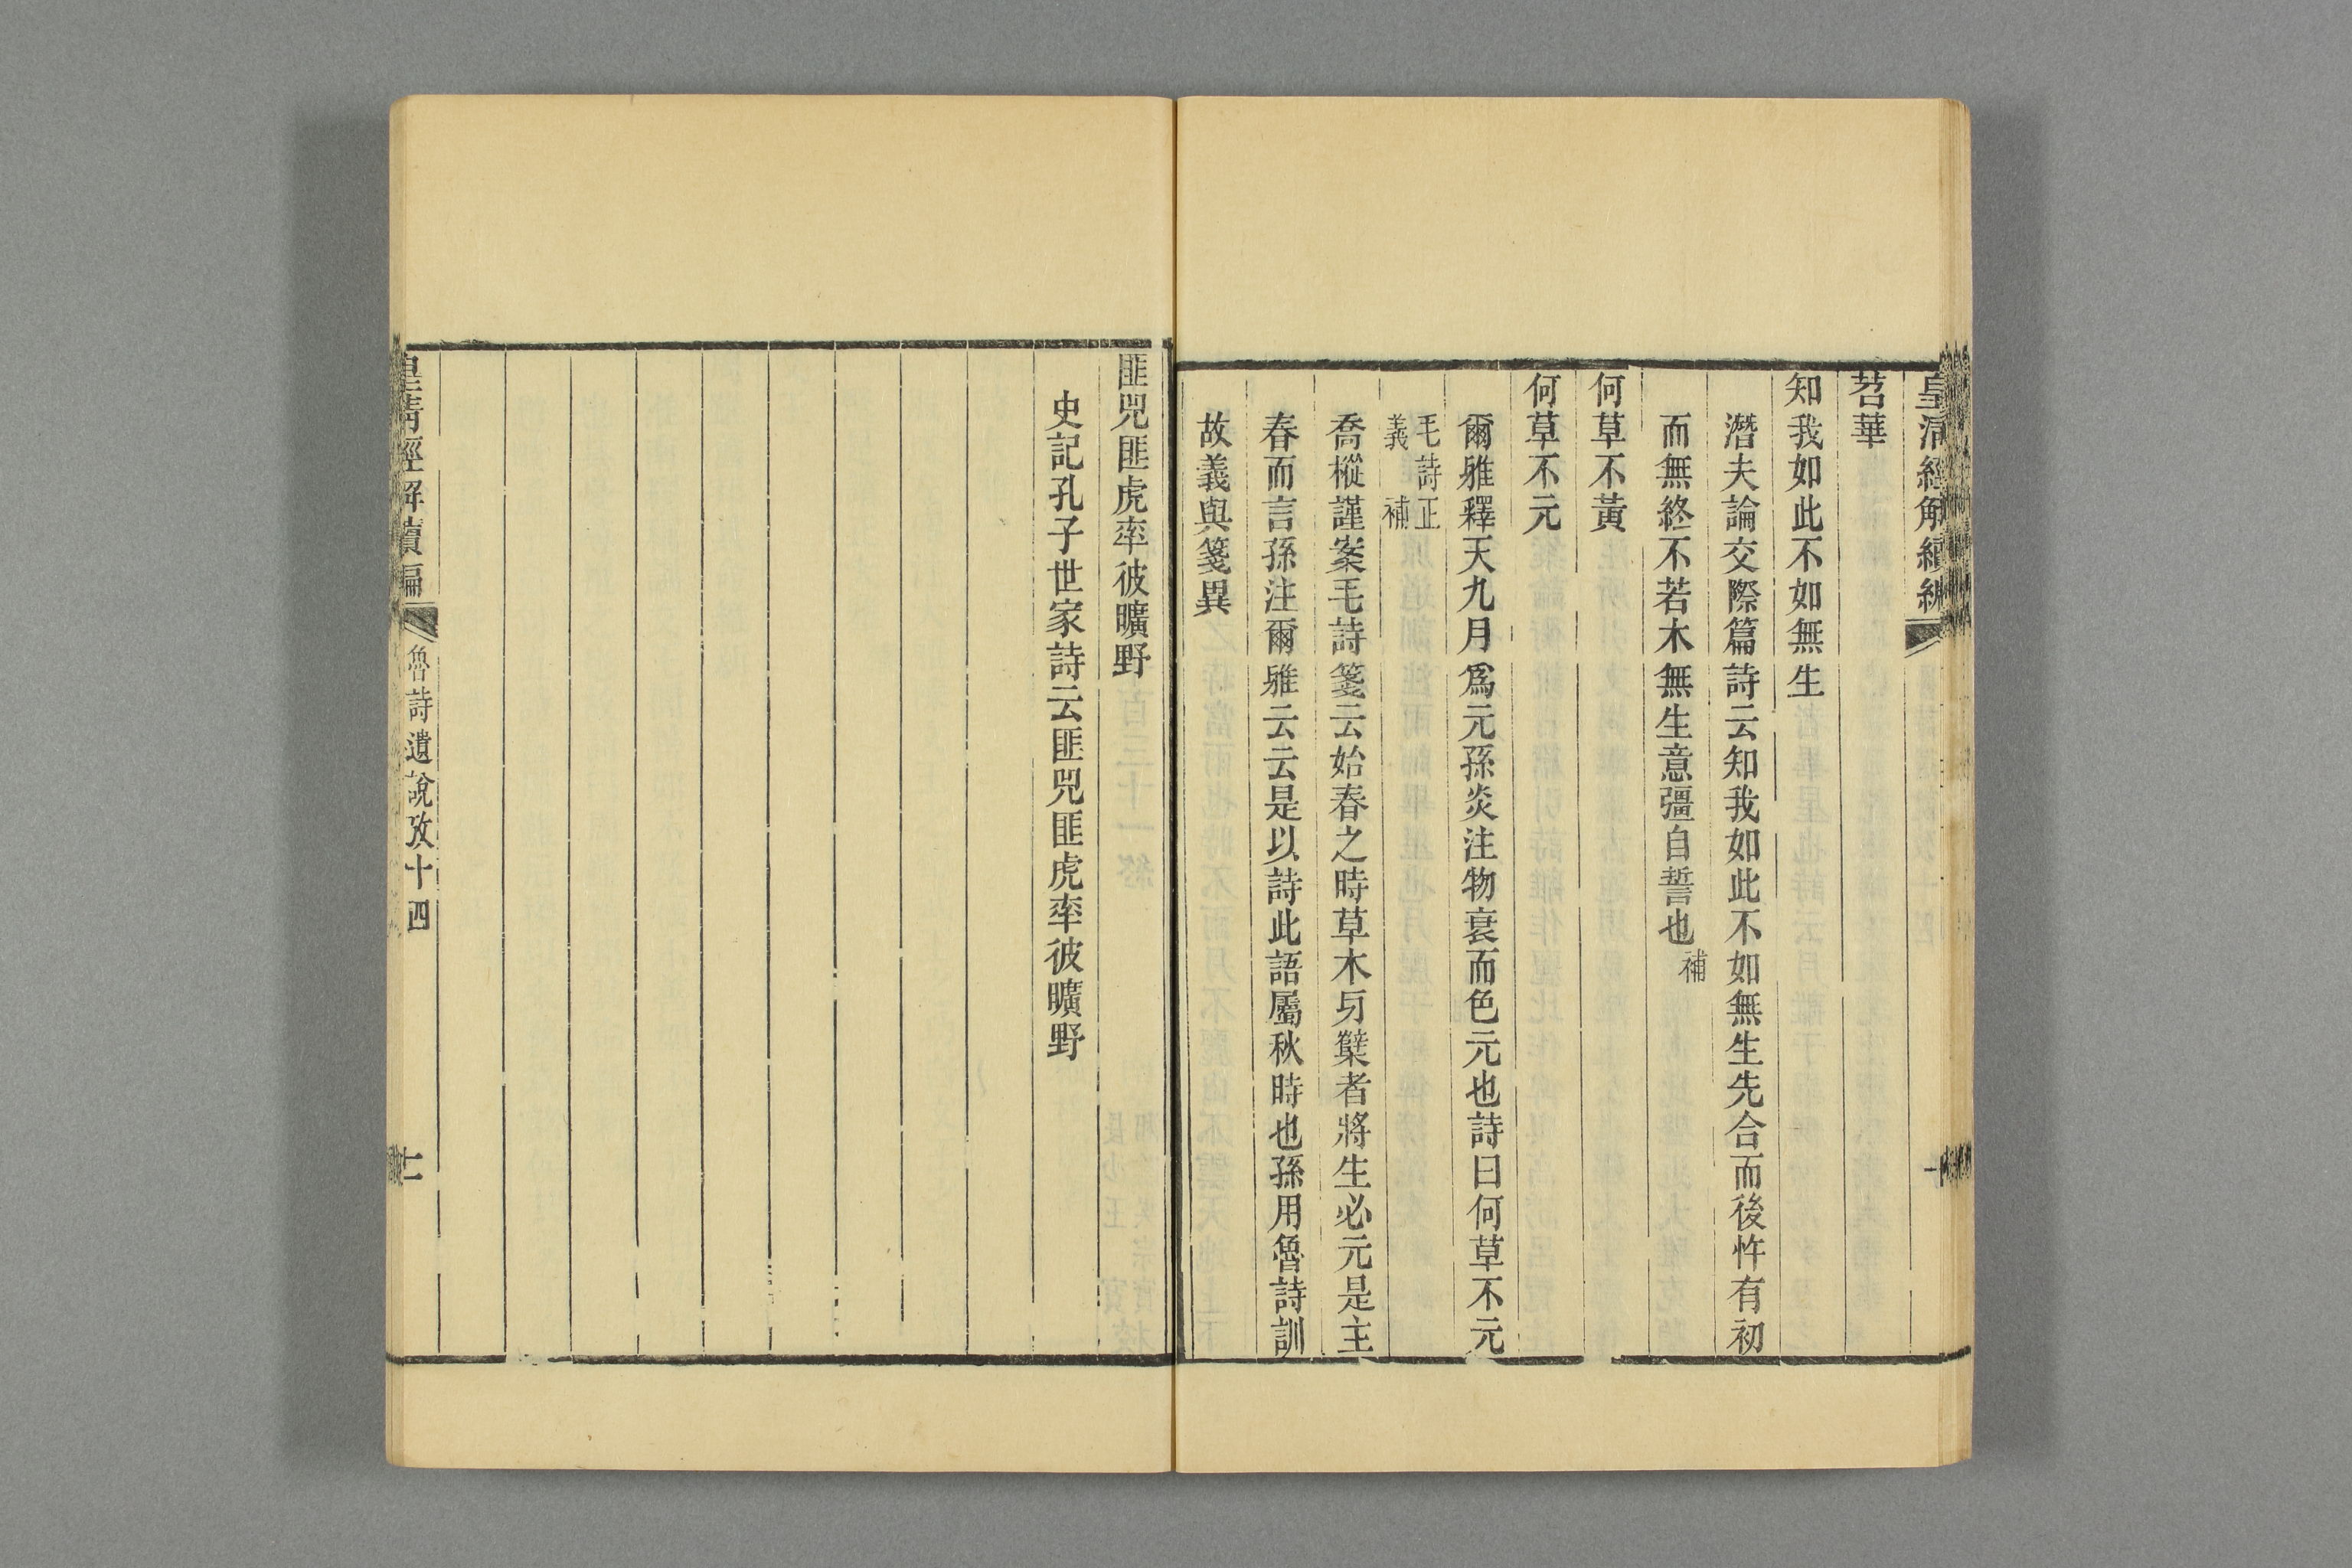 皇清經解續編
苕華
知我如此不如無生
潛夫論交際篇詩云知我如此不如無生先合而後忤有初
而無終不若木無生意彊自誓也補
何草不黃
何草不元
爾雅釋天九月爲元孫炎注物衰而色元也詩曰何草不元
毛詩正
義補
喬樅謹案毛詩箋云始春之時草木牙櫱者將生必元是主
春而言孫注爾雅云云是以詩此語屬秋時也孫用魯詩訓
故義與箋異
匪兕匪虎率彼曠野
史記孔子世家詩云匪兕匪虎率彼曠野
皇清經解續編
魯詩遺說攷十四